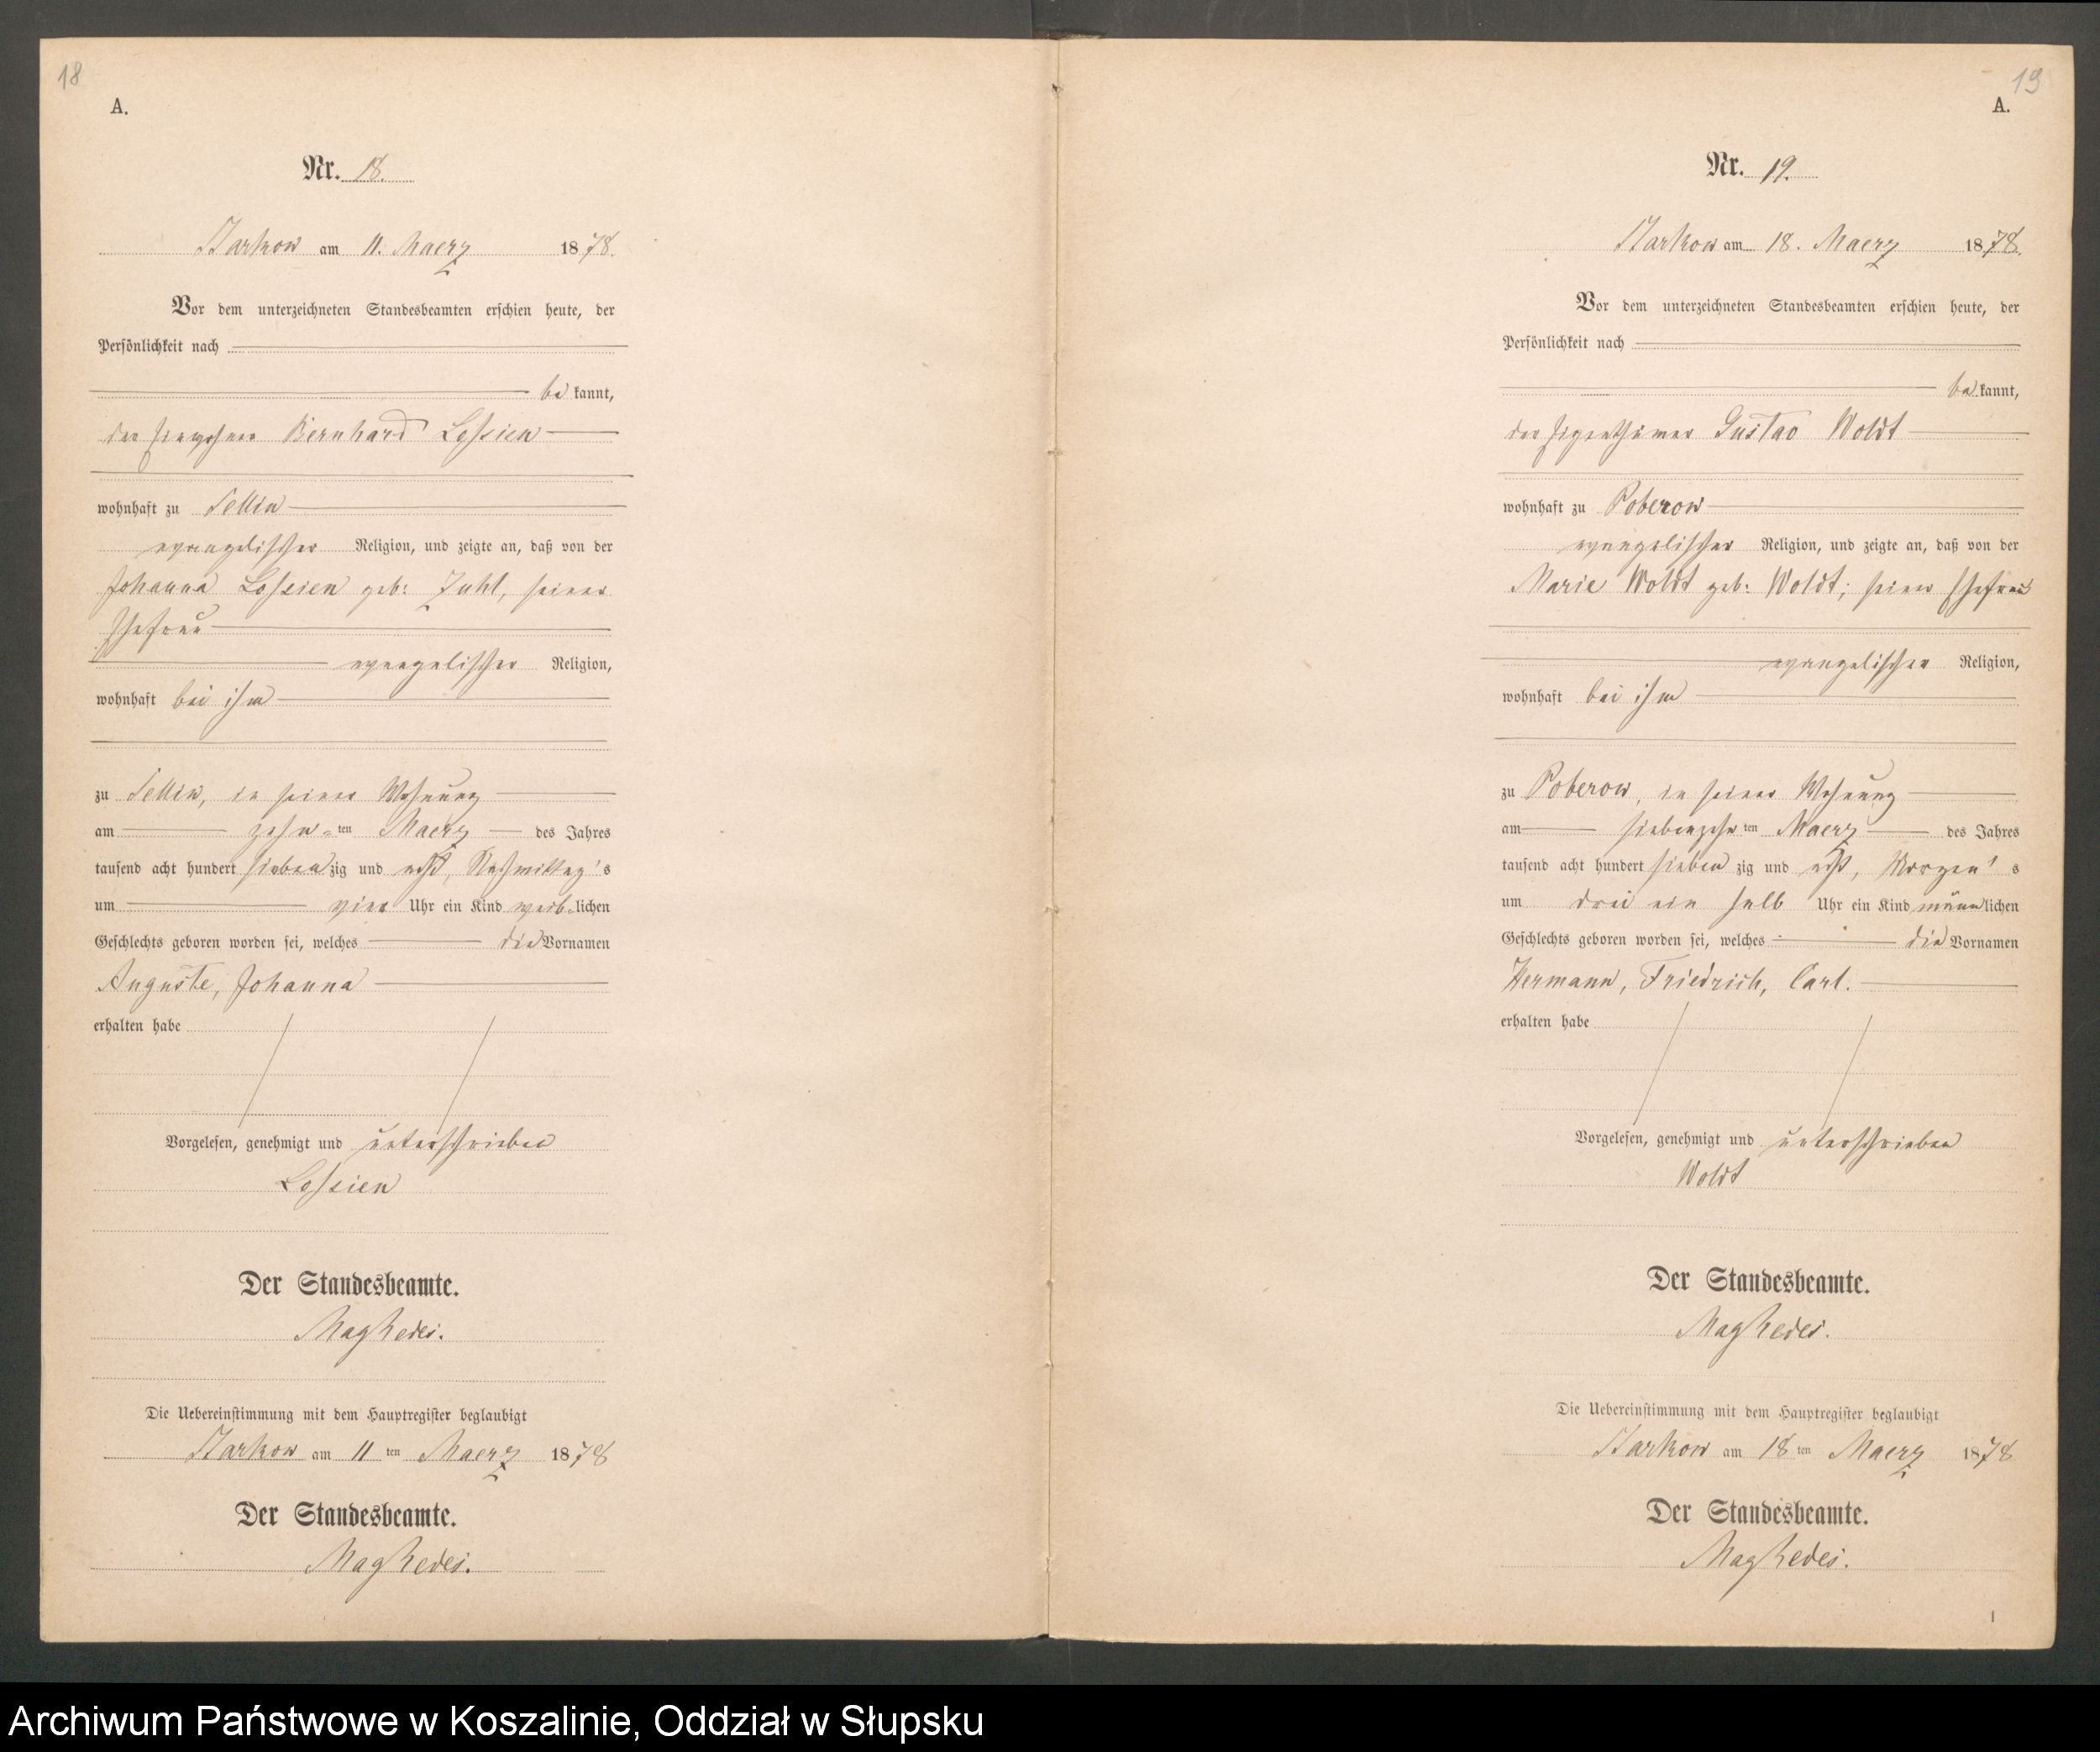 18
A.
Nr. 18.
Starkow am 11. Maerz 1878.
Vor dem unterzeichneten Standesbeamten erschien heute, der
Persönlichkeit nach
bekannt,
der Einwohner Bernhard Lossien
wohnhaft zu Sellin
evangelischer Religion, und zeigte an, daß von der
Johanna Lossien geb: Zuhl, seiner
Ehefrau
evangelischer Religion,
wohnhaft bei ihm
zu Sellin, in seiner Wohnung
am zehn-ten Maerz des Jahres
tausend acht hundert siebenzig und acht, Nachmittag's
um vier Uhr ein Kind weib-lichen
Geschlechts geboren worden sei, welches die Vornamen
Auguste, Johanna
erhalten habe
Vorgelesen, genehmigt und unterschrieben
Lossien
Der Standesbeamte.
Die Uebereinstimmung mit dem Hauptregister beglaubigt
Starkow am 11 ten Maerz 1878
Der Standesbeamte.
19
A.
Nr. 19.
Starkow am 18. Maerz 1878.
Vor dem unterzeichneten Standesbeamten erschien heute, der
Persönlichkeit nach
bekannt,
der Eigenthümer Gustav Woldt
wohnhaft zu Poberow
evangelischer Religion, und zeigte an, daß von der
Marie Woldt geb: Woldt, seiner Ehefrau
evangelischer Religion,
wohnhaft bei ihm
zu Poberow, in seiner Wohnung
am siebenzehnten Maerz des Jahres
tausend acht hundert siebenzig und acht, Morgen's
um drei ein halb Uhr ein Kind männlichen
Geschlechts geboren worden sei, welches die Vornamen
Hermann, Friedrich, Carl.
erhalten habe
Vorgelesen, genehmigt und unterschrieben
Woldt
Der Standesbeamte.
Die Uebereinstimmung mit dem Hauptregister beglaubigt
Starkow am 18 ten Maerz 1878
Der Standesbeamte.
Archiwum Państwowe w Koszalinie, Oddział w Słupsku